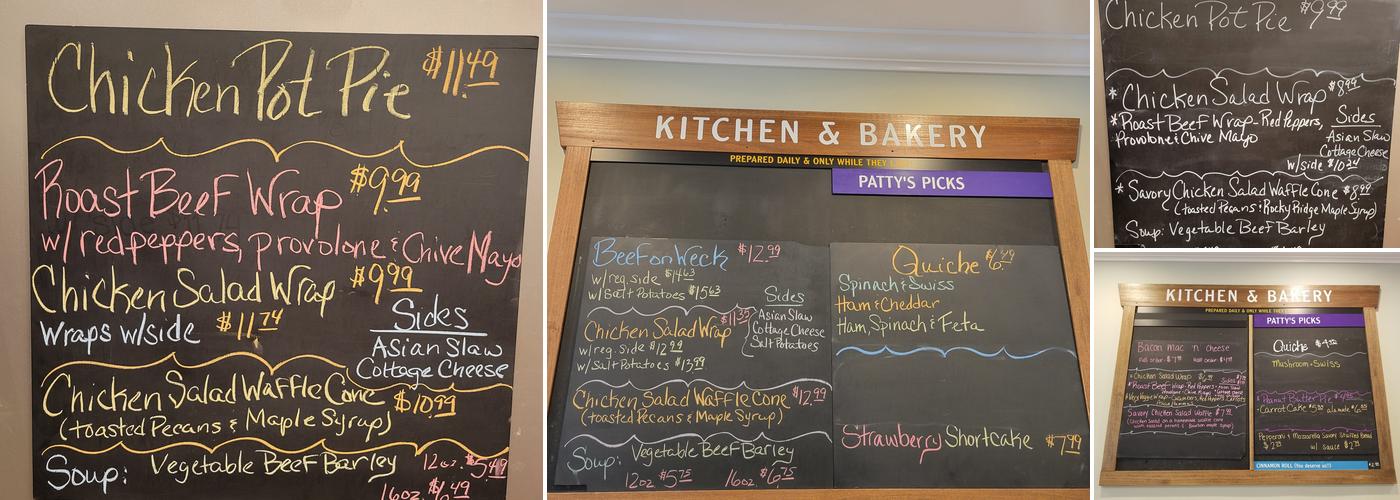 Chicken Pot Pie $11.49
Roast Beef Wrap $9.99
w/ red peppers, provolone & Chive Mayo
Chicken Salad Wrap $9.99
Wraps w/side $11.74
Sides
Asian Slaw
Cottage Cheese
Chicken Salad Waffle Cone $10.99
(toasted Pecans & Maple Syrup)
Soup: Vegetable Beef Barley 12oz. $5.49
16oz. $6.49
KITCHEN & BAKERY
PREPARED DAILY & ONLY WHILE THEY
PATTY'S PICKS
Beef on Weck $12.99
w/reg. side $14.63
w/Salt Potatoes $15.63
Sides
Asian Slaw
Cottage Cheese
Salt Potatoes
Chicken Salad Wrap $11.35
w/reg. side $12.99
w/Salt Potatoes $13.99
Chicken Salad Waffle Cone $12.99
(toasted Pecans & Maple Syrup)
Soup: Vegetable Beef Barley
12oz $5.75 16oz. $6.75
Quiche $6.49
Spinach & Swiss
Ham & Cheddar
Ham, Spinach & Feta
Strawberry Shortcake $7.99
Chicken Pot Pie $9.99
* Chicken Salad Wrap $8.99
* Roast Beef Wrap - Red Peppers,
Provolone & Chive Mayo
Sides
Asian Slaw
Cottage Cheese
w/side $10.24
* Savory Chicken Salad Waffle Cone $8.99
(toasted Pecans & Rocky Ridge Maple Syrup)
Soup: Vegetable Beef Barley
KITCHEN & BAKERY
PREPARED DAILY & ONLY WHILE THEY
PATTY'S PICKS
Bacon mac n cheese
Chicken Salad Wrap
Roast Beef Wrap - Red Peppers
Savory Chicken Salad Waffle
Quiche
Mushroom & Swiss
Peanut Butter Pie
Carrot Cake
Pepperoni & Mozzarella Savory Stuffed Bread
w/ sauce
CINNAMON ROLL (You deserve it!)